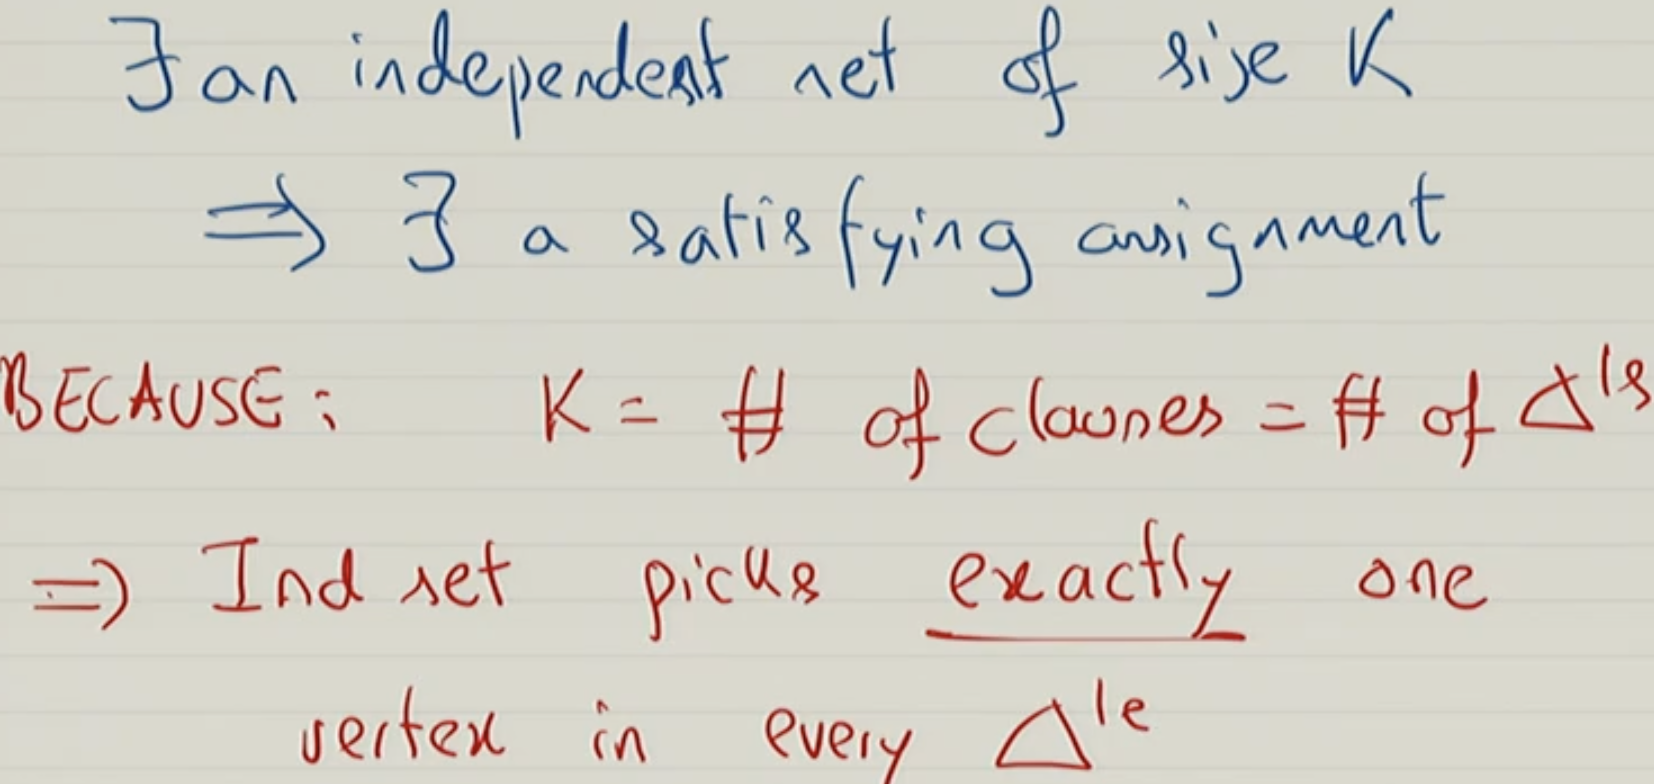 ∃ an independent set of size K
⇒ ∃ a satisfying assignment
BECAUSE: K = # of clauses = # of Δ'ls
⇒ Ind set picks exactly one
vertex in every Δ'le